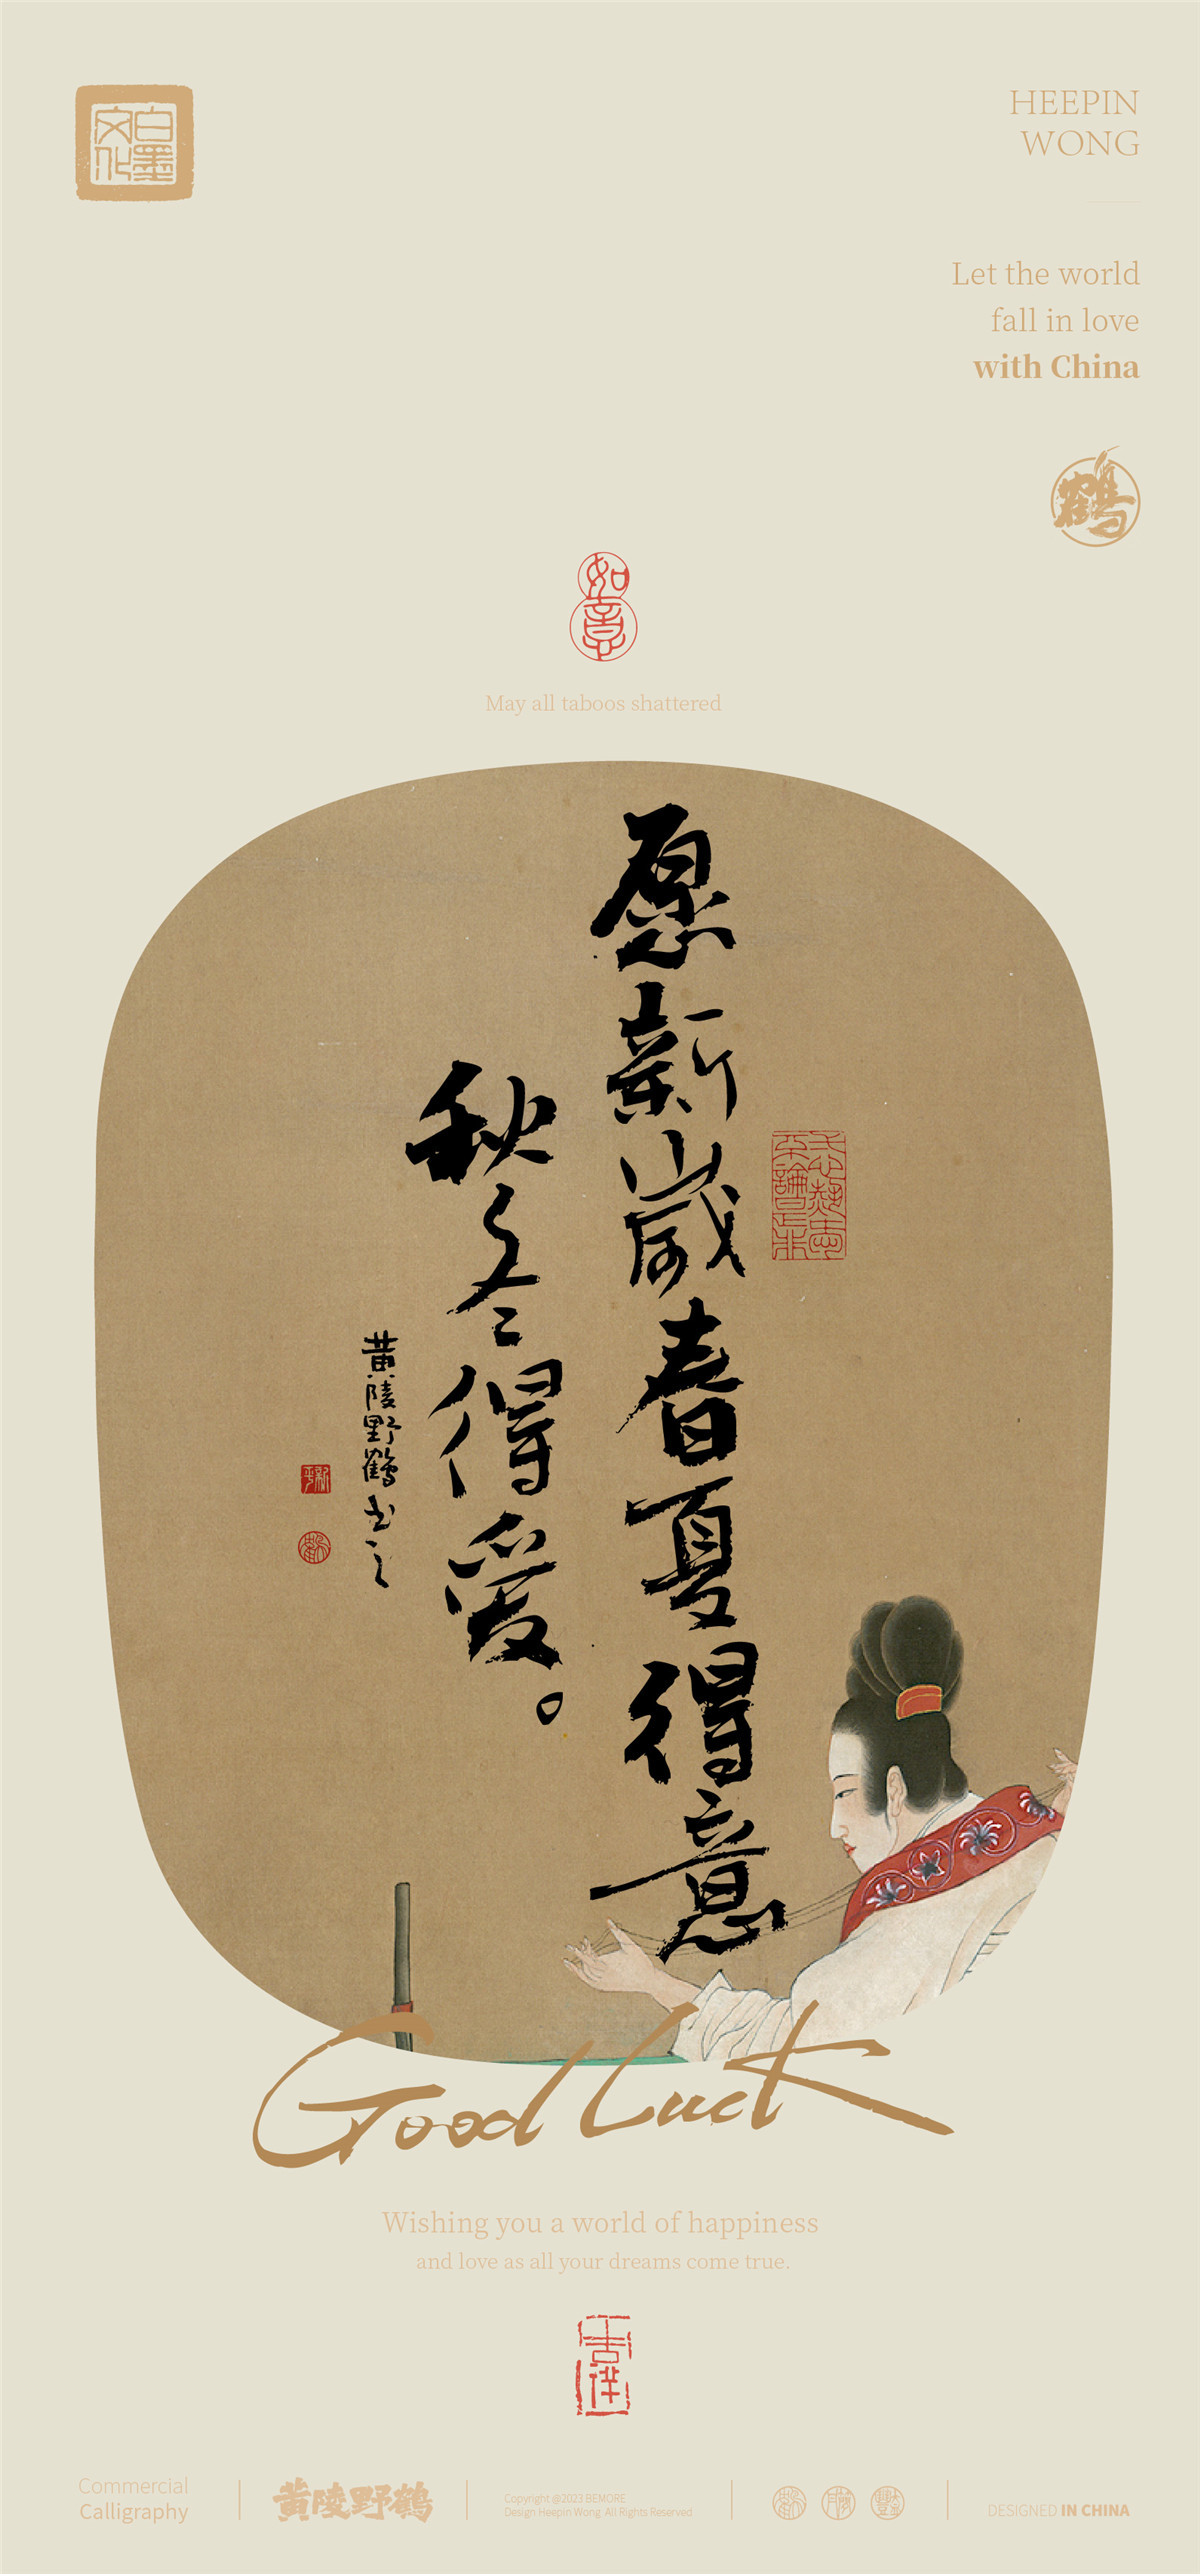 白墨
文化
HEEPIN
WONG
Let the world
fall in love
with China
鹤
如意
May all taboos shattered
愿新岁春夏得意
秋冬得爱。
黄陵野鹤书之
Good Luck
Wishing you a world of happiness
and love as all your dreams come true.
吉祥
Commercial
Calligraphy
黄陵野鹤
Copyright @2023 BEMORE
Design Heepin Wong. All Rights Reserved
DESIGNED IN CHINA